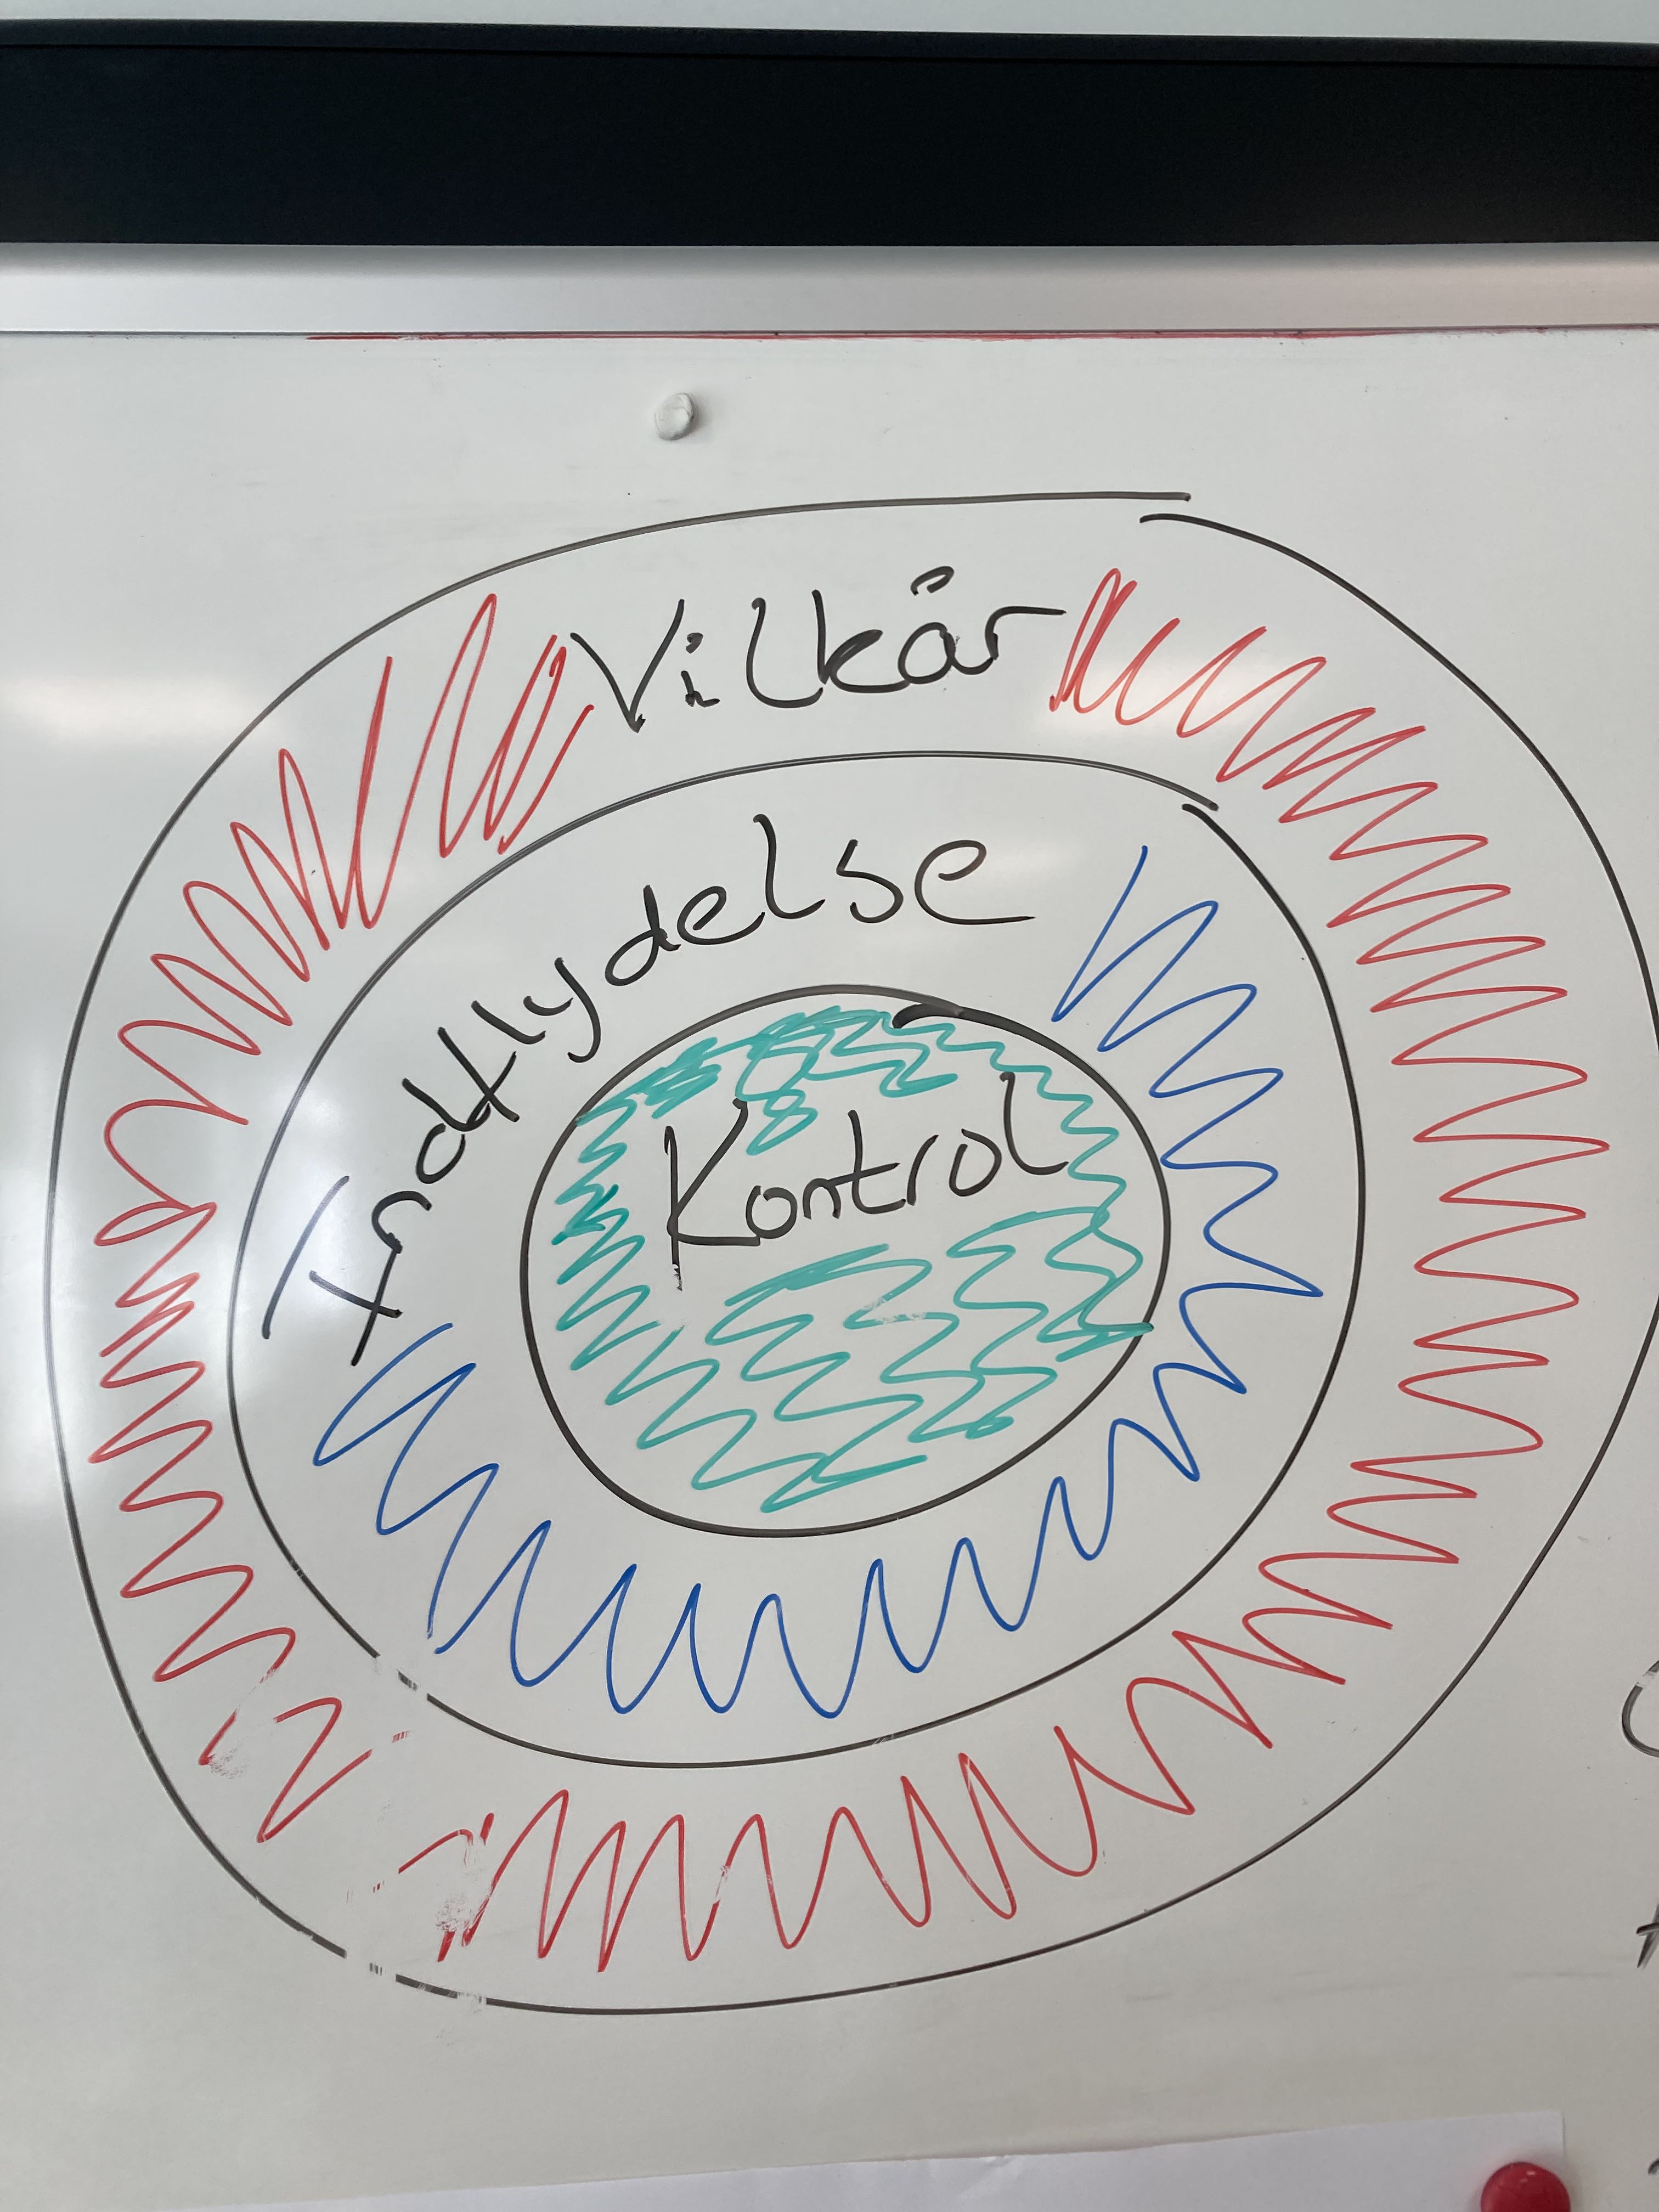 Vilkår
Indflydelse
Kontrol